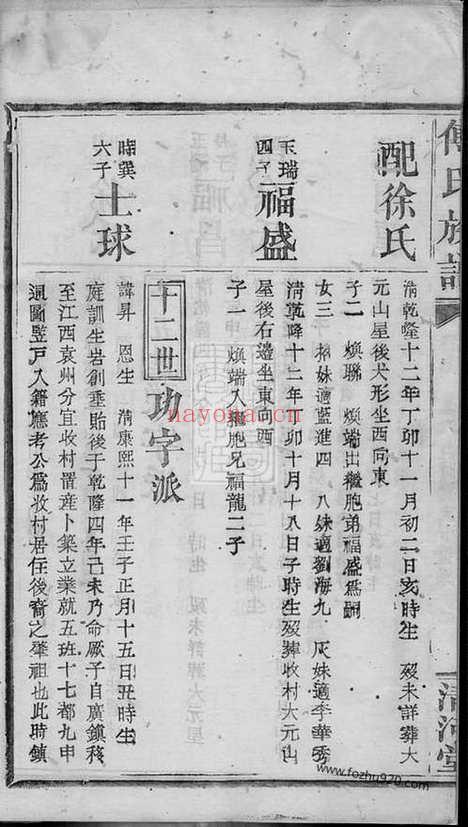 傅氏族譜
清河堂
配徐氏
清乾隆十二年丁卯十一月初二日亥時生 歿未詳葬大
元山屋後犬形坐西向東
子二 煥聯 煥端出繼胞弟福盛為嗣
女三 格妹適藍進四 八妹適劉海九 灰妹適李華秀
玉瑞四子福盛
清乾隆十二年丁卯十月十八日子時生歿葬收村大元山
屋後右邊坐東向西
子一 煥端入繼胞兄福龍二子
十二世 功字派
時巽六子士球
諱昇 恩生 清康熙十一年壬子正月十五日丑時生
庭訓生岩創垂貽後于乾隆四年己未乃命厥子自廣鎮移
至江西袁州分宜收村置産卜築立業就五班十七都九申
迴圖竪戶入籍應考公為收村居任後裔之肇祖也此時鎮
nayona.cn
www.fozhu920.com